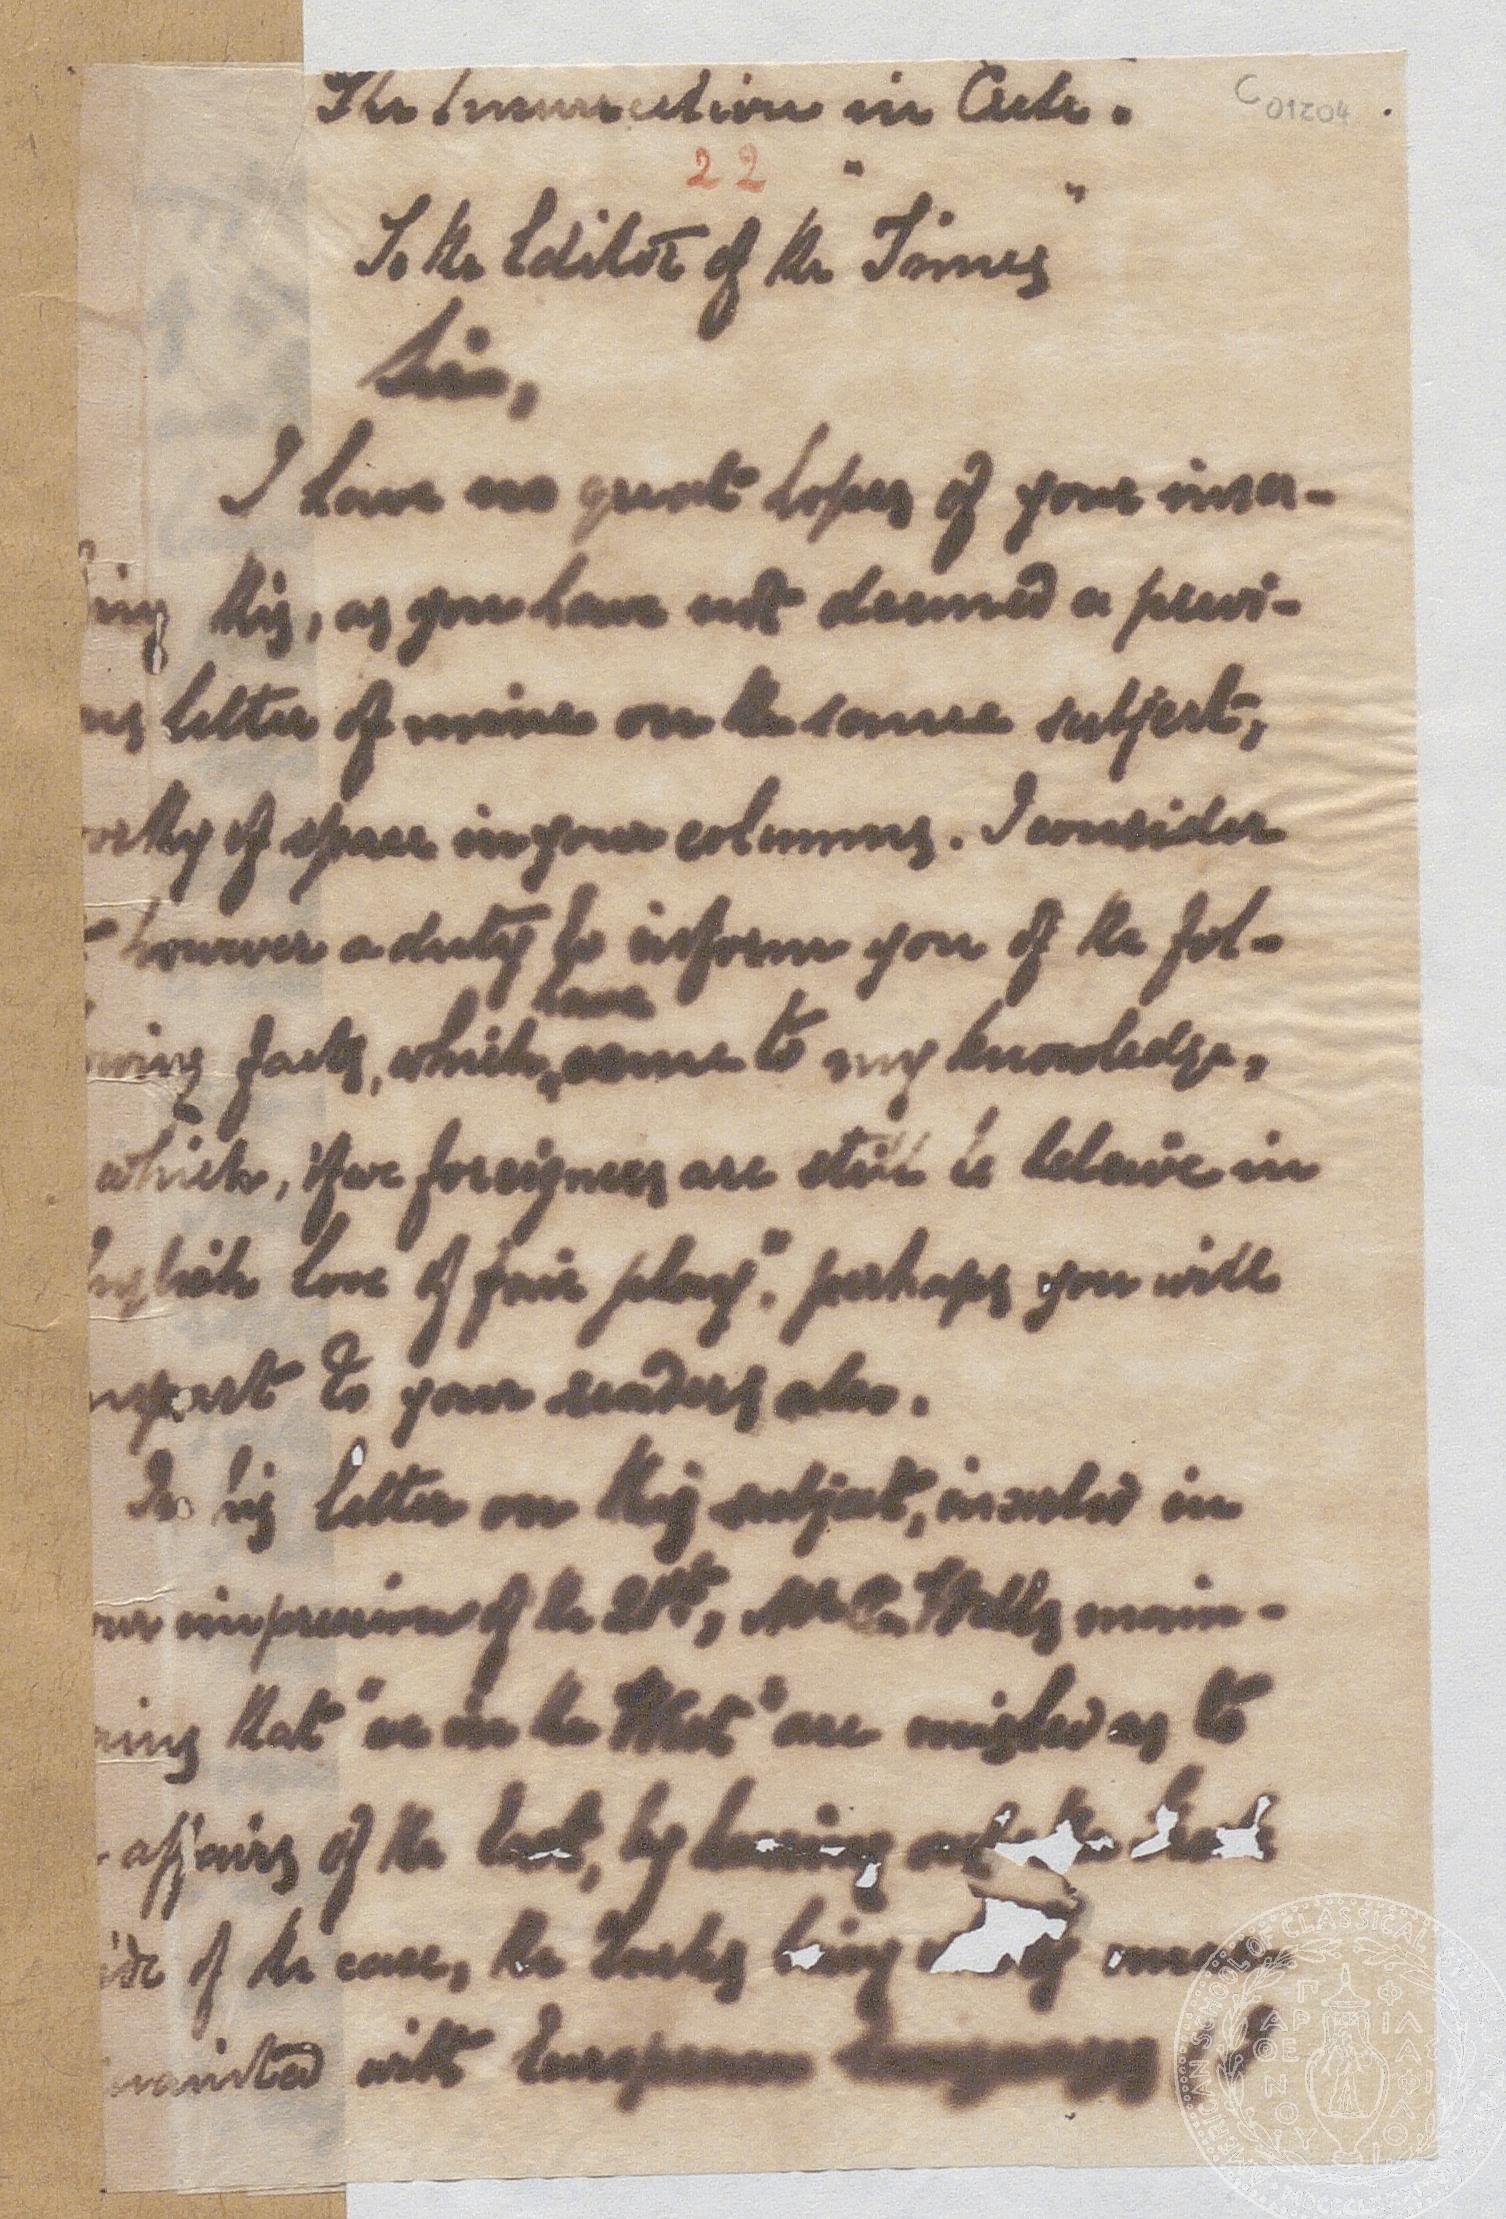 The Insurrection in Crete.
C01204
22
To the Editor of the "Times"
Sir,
I have no great hopes of your inser-
ting this, as you have not deemed a previ-
ous letter of mine on the same subject,
worthy of space in your columns. I consider
however a duty to inform you of the fol-
have
owing facts, which come to my knowledge,
which, if we foreigners are still to beleive in
English love of fair play", perhaps you will
impart to your readers also.
In his letter on this subject, inserted in
our impression of the 21st, Mr Wells main-
ning that "we in the West" are misled as to
affairs of the East, by hearing the Greek
ide of the case, the Turks being
uainted with European
AMERICAN SCHOOL OF CLASSICAL
ΠΑΡΘΕΝΟΥ ΦΙΛΑΣ ΦΙΛΟ